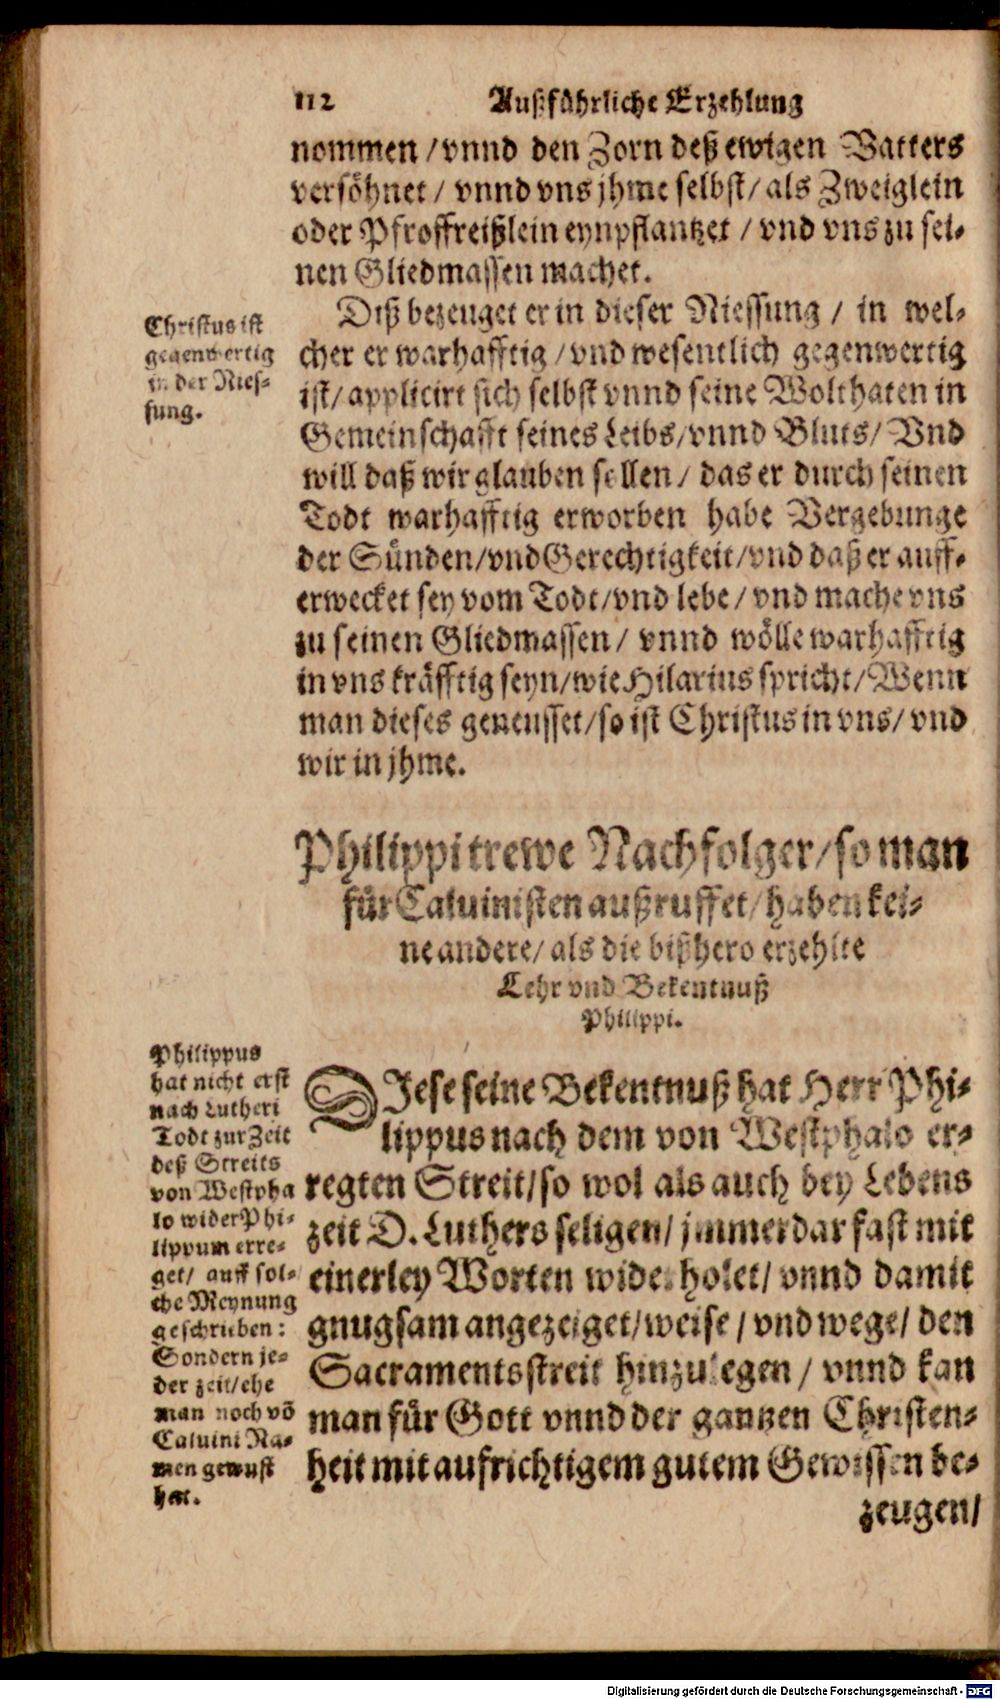 112 Außführliche Erzehlung
nommen / vnnd den Zorn deß ewigen Vatters
versöhnet / vnnd vns jhme selbst / als Zweiglein
oder Pfroffreißlein eynpflantzet / vnd vns zu sei-
nen Gliedmassen machet.
Diß bezeuget er in dieser Niessung / in wel-
cher er warhafftig / vnd wesentlich gegenwertig
ist / applicirt sich selbst vnnd seine Wolthaten in
Gemeinschafft seines Leibs / vnnd Bluts / Vnd
will daß wir glauben sollen / das er durch seinen
Todt warhafftig erworben habe Vergebunge
der Sünden / vnd Gerechtigkeit / vnd daß er auff-
erwecket sey vom Todt / vnd lebe / vnd mache vns
zu seinen Gliedmassen / vnnd wölle warhafftig
in vns kräfftig seyn / wie Hilarius spricht / Wenn
man dieses geneusset / so ist Christus in vns / vnd
wir in jhme.
Christus ist
gegenwertig
in der Nies-
sung.
Philippi trewe Nachfolger / so man
für Caluinisten außruffet / haben kei-
ne andere / als die bißhero erzehlte
Lehr vnd Bekentnuß
Philippi.
DIese seine Bekentnuß hat Herr Phi-
lippus nach dem von Westphalo er-
regten Streit / so wol als auch bey Lebens
zeit D. Luthers seligen / jmmerdar fast mit
einerley Worten widerholet / vnnd damit
gnugsam angezeiget / weise / vnd wege / den
Sacramentsstreit hinzulegen / vnnd kan
man für Gott vnnd der gantzen Christen-
heit mit aufrichtigem gutem Gewissen be-
zeugen /
Philippus
hat nicht erst
nach Lutheri
Todt zur Zeit
deß Streits
von Westpha
lo wider Phi-
lippum erre-
get / auff sol-
che Meynung
geschrieben:
Sondern je-
der zeit / ehe
man noch võ
Caluini Na-
men gewust
hat.
Digitalisierung gefördert durch die Deutsche Forschungsgemeinschaft - DFG